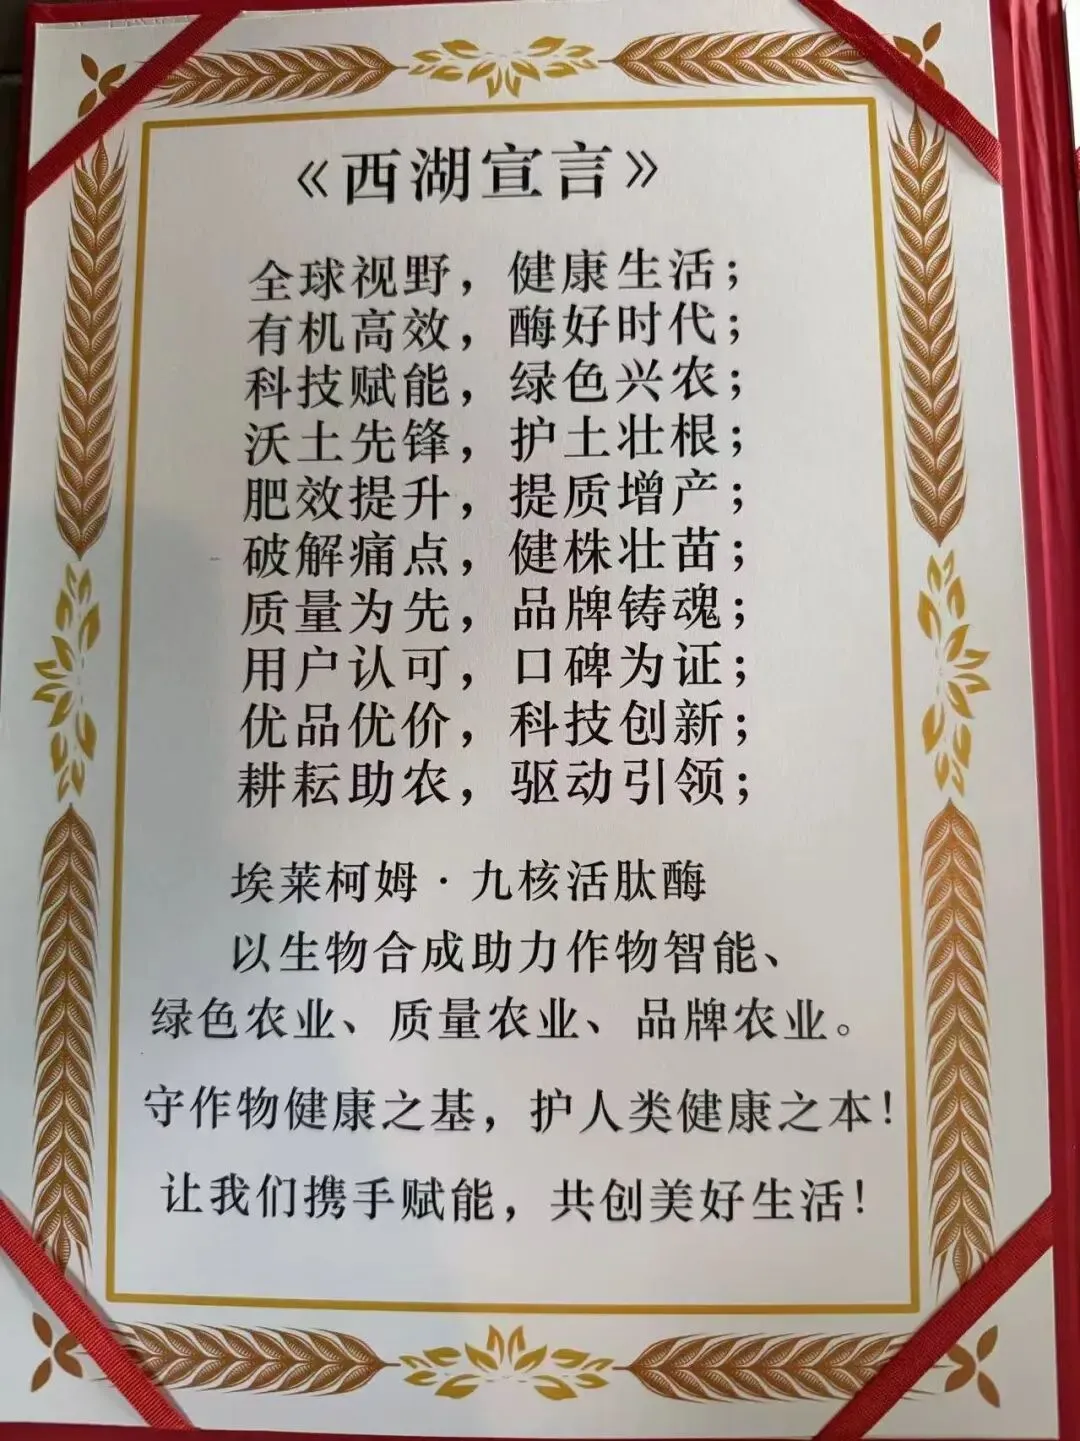 《西湖宣言》
全球视野，健康生活；
有机高效，酶好时代；
科技赋能，绿色兴农；
沃土先锋，护土壮根；
肥效提升，提质增产；
破解痛点，健株壮苗；
质量为先，品牌铸魂；
用户认可，口碑为证；
优品优价，科技创新；
耕耘助农，驱动引领；
埃莱柯姆·九核活肽酶
以生物合成助力作物智能、
绿色农业、质量农业、品牌农业。
守作物健康之基，护人类健康之本！
让我们携手赋能，共创美好生活！